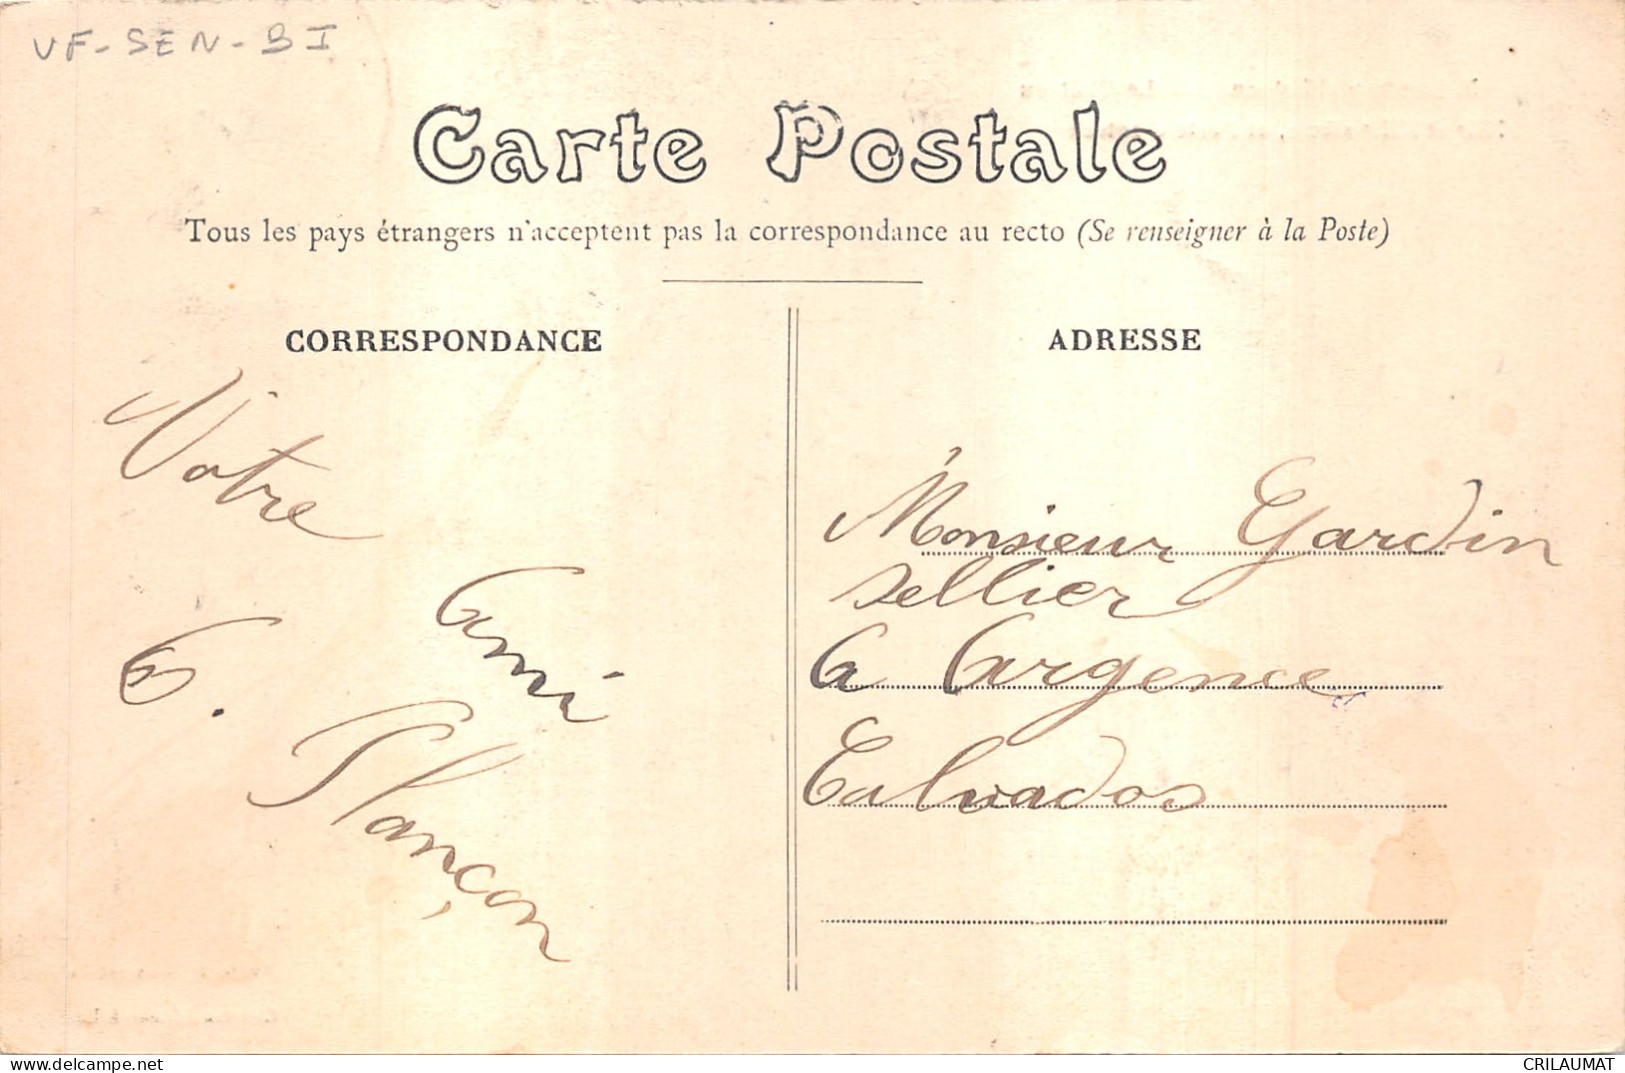 VF-SEN-BI
Carte Postale
Tous les pays étrangers n'acceptent pas la correspondance au recto (Se renseigner à la Poste)
CORRESPONDANCE
Votre
ami
G. Plançon
ADRESSE
Monsieur Gardin
sellier
a Argences
Calvados
delcampe.net
CRILAUMAT